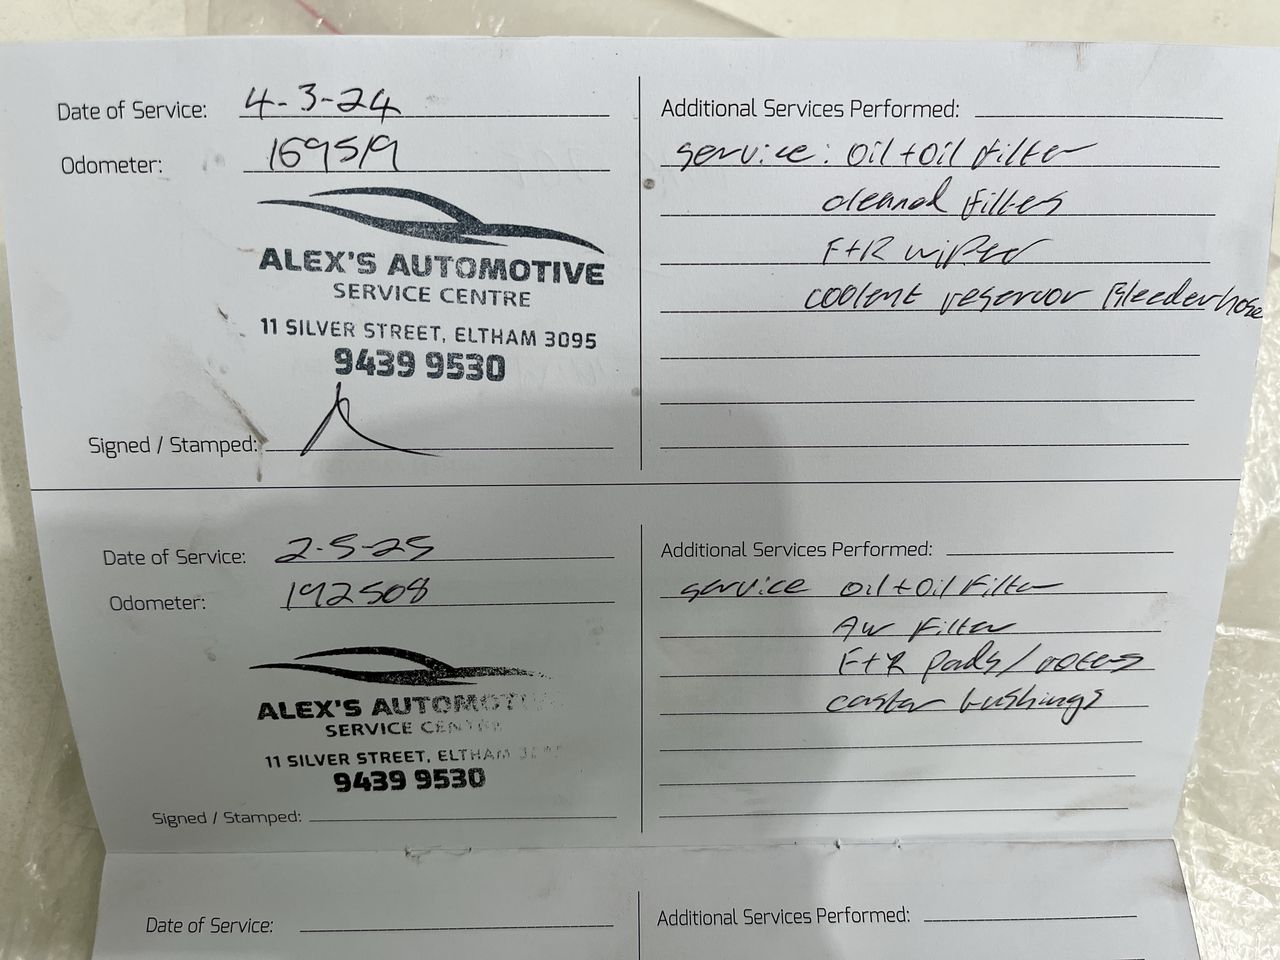 Date of Service: 4-3-24
Odometer: 169519
ALEX'S AUTOMOTIVE
SERVICE CENTRE
11 SILVER STREET, ELTHAM 3095
9439 9530
Signed / Stamped:
Additional Services Performed:
service: Oil + Oil filter
cleaned filters
F+R wiped
coolent reservoor Bleederhose
Date of Service: 2-5-25
Odometer: 192508
ALEX'S AUTOMOTIVE
SERVICE CENTRE
11 SILVER STREET, ELTHAM 3095
9439 9530
Signed / Stamped:
Additional Services Performed:
service oil + Oil Filter
Air Filter
F+R Pads/
caster bushings
Date of Service:
Additional Services Performed: